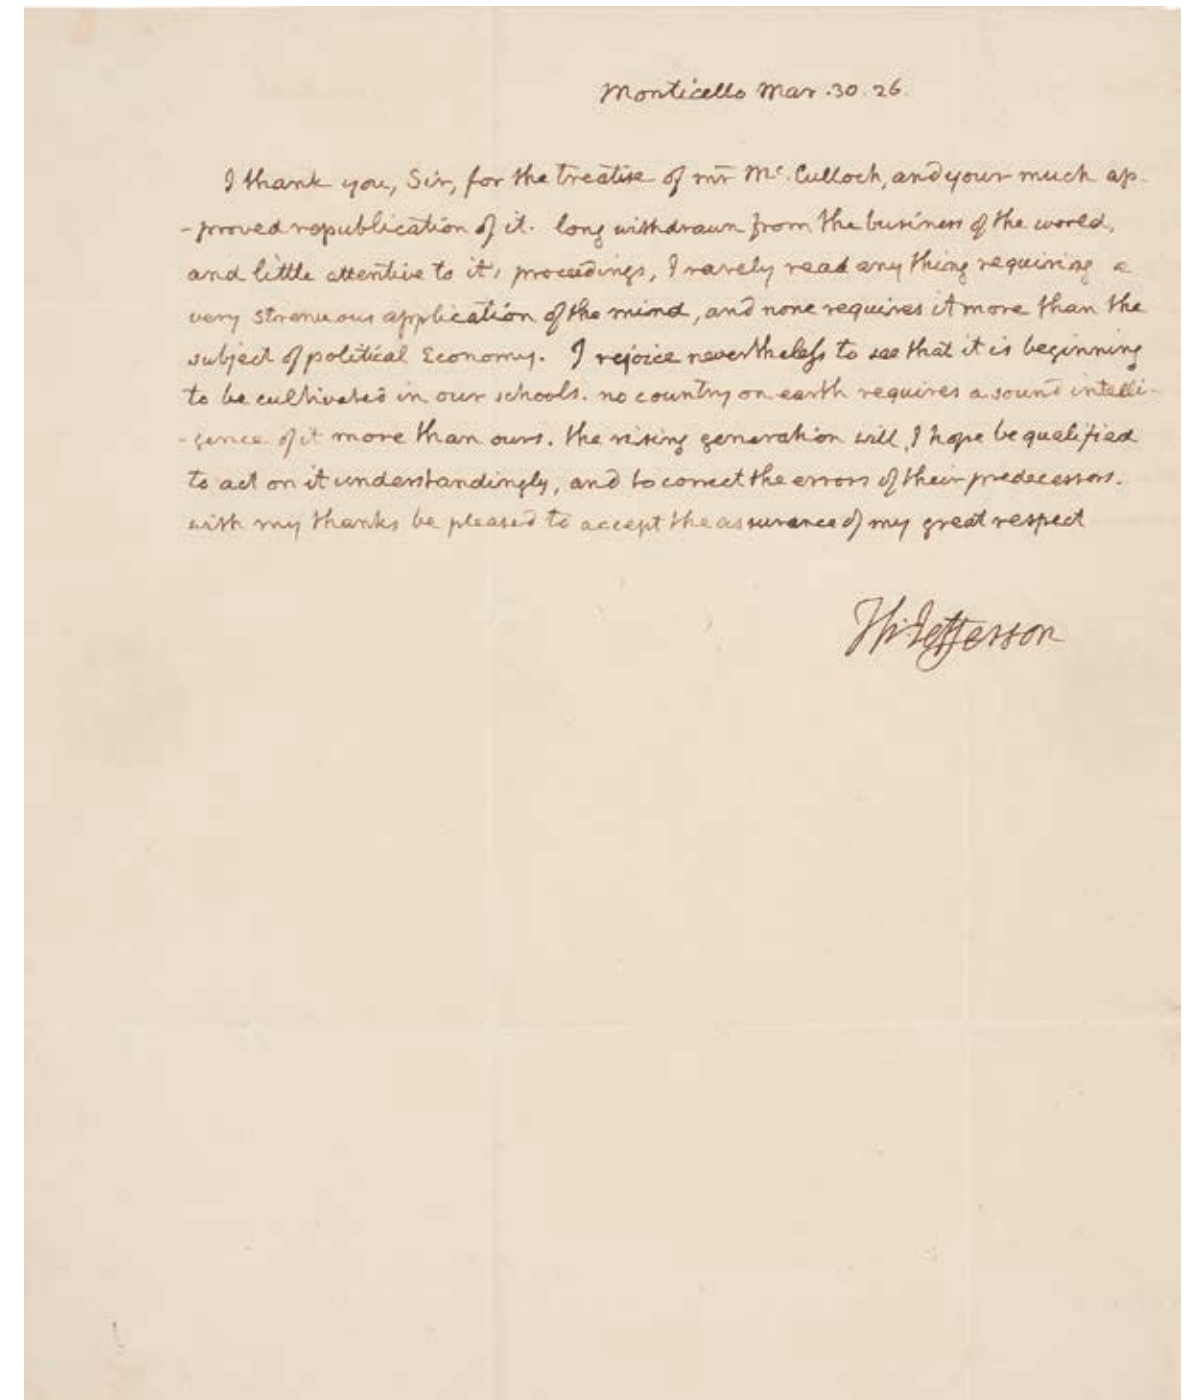 Monticello Mar. 30. 26.
I thank you, Sir, for the treatise of mr Mc.Culloch, and your much ap-
-proved republication of it. long withdrawn from the business of the world,
and little attentive to it's proceedings, I rarely read any thing requiring a
very strenuous application of the mind, and none requires it more than the
subject of political Economy. I rejoice nevertheless to see that it is beginning
to be cultivated in our schools. no country on earth requires a sound intelli-
-gence of it more than ours. the rising generation will, I hope be qualified
to act on it understandingly, and to correct the errors of their predecessors.
with my thanks be pleased to accept the assurance of my great respect
Th: Jefferson